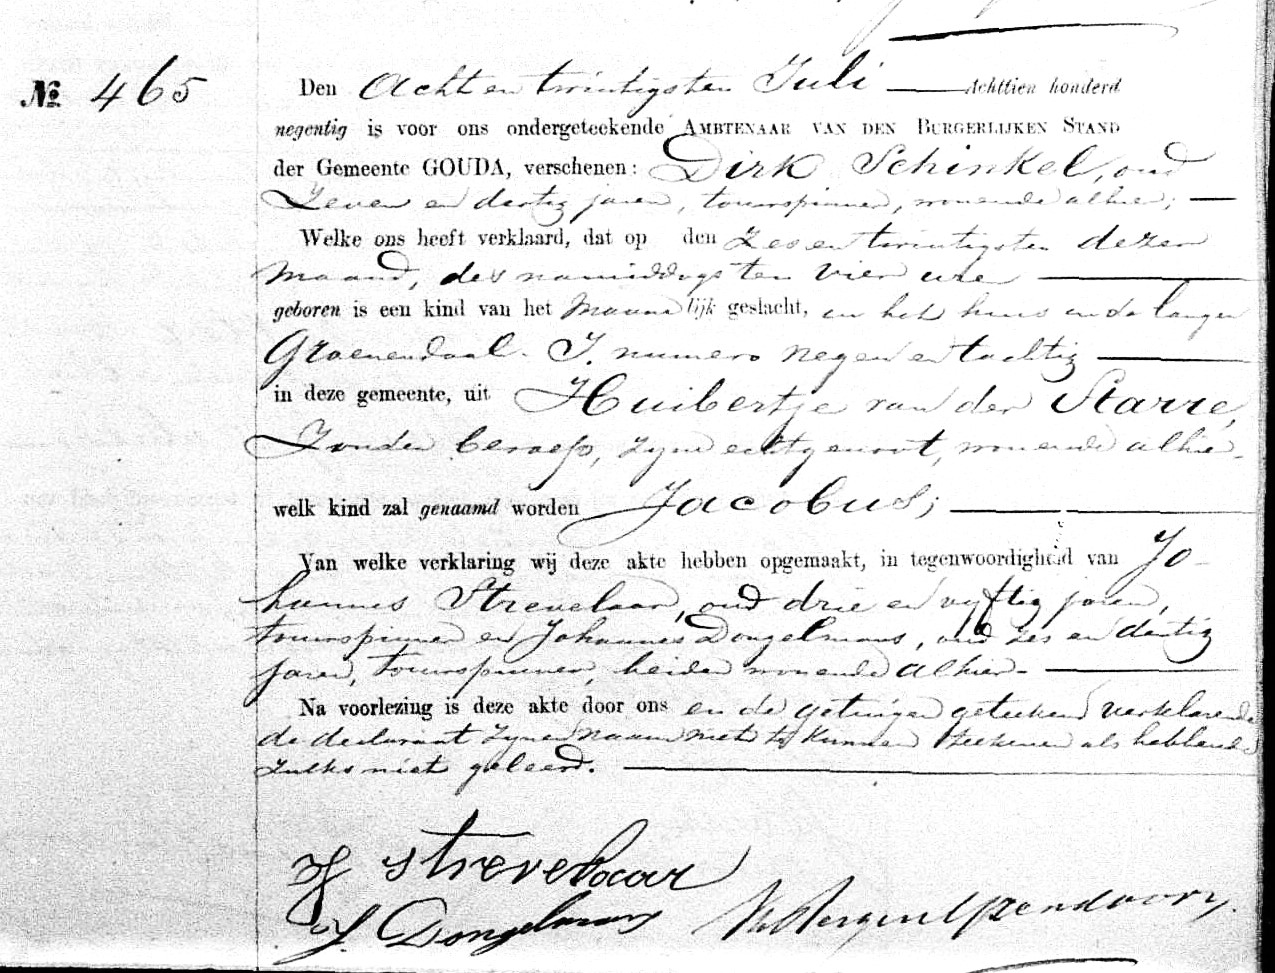 № 465
Den Acht en twintigsten Juli Achttien honderd
negentig is voor ons ondergeteekende AMBTENAAR VAN DEN BURGERLIJKEN STAND
der Gemeente GOUDA, verschenen: Dirk Schinkel, oud
Zeven en dertig jaren, touwspinner, wonende alhier;
Welke ons heeft verklaard, dat op den Zes en twintigsten dezer
maand, des namiddags ten vier ure
geboren is een kind van het Mannelijk geslacht, in het huis aan de lange
Groenendaal I. numero negen en tachtig
in deze gemeente, uit Huibertje van der Starre,
Zonder beroep, zijne echtgenoot, wonende alhier.
welk kind zal genaamd worden Jacobus;
Van welke verklaring wij deze akte hebben opgemaakt, in tegenwoordigheid van Jo-
hannes Strevelaar, oud drie en vijftig jaren,
touwspinner en Johannes Dongelmans, oud zes en dertig
jaren, touwspinner, beiden wonende alhier.
Na voorlezing is deze akte door ons en de getuigen geteekend verklarende
de declarant zijnen naam niet te kunnen teekenen als hebbende
zulks niet geleerd.
J Strevelaar
J. Dongelmans